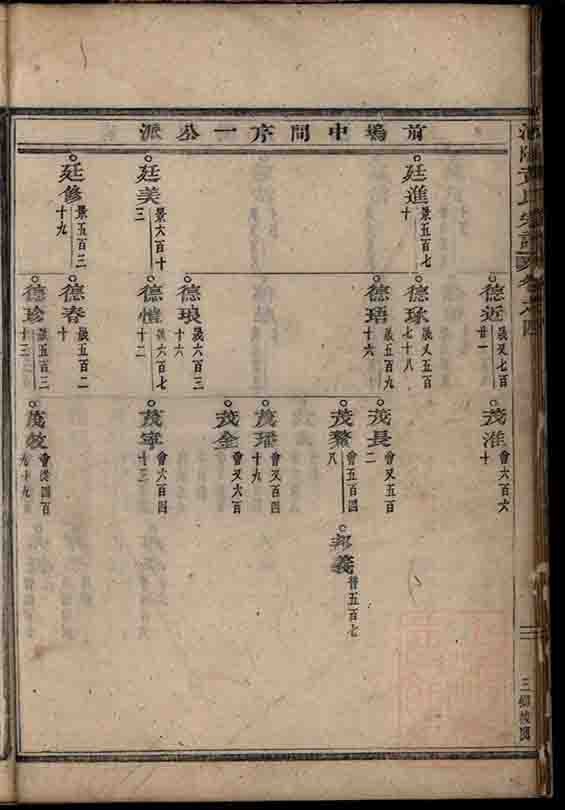 前塢中間序一公派
廷進 景五百七十
廷美 景六百十三
廷修 景五百三十九
德近 晟又七百廿一
德球 晟又五百七十八
德珸 晟五百九十六
德琅 晟六百三十六
德愷 晟六百七十二
德春 晟五百二十
德珍 晟五百三十三
茂淮 會六百六十
茂長 會又五百二
茂鰲 會五百四八
茂璠 會又百四十九
茂金 會又六百
茂寧 會六百四十三
茂 會 四百九十九
邦義 晉五百七七
氏宗譜 卷之四